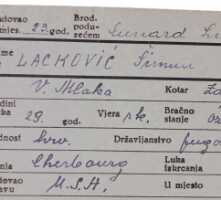 dovao
mjes. 29. god. Brod. podu- zećem Cunard Li
me LACKOVIĆ Šimun
V. Mlaka Kotar Za
dini
ka 29. god. Vjera rk. Bračno stanje o
nost hrv. Državljanstvo jugo
nia Cherbourg Luka iskrcanja
dovao
avu U.S.A. U mjesto